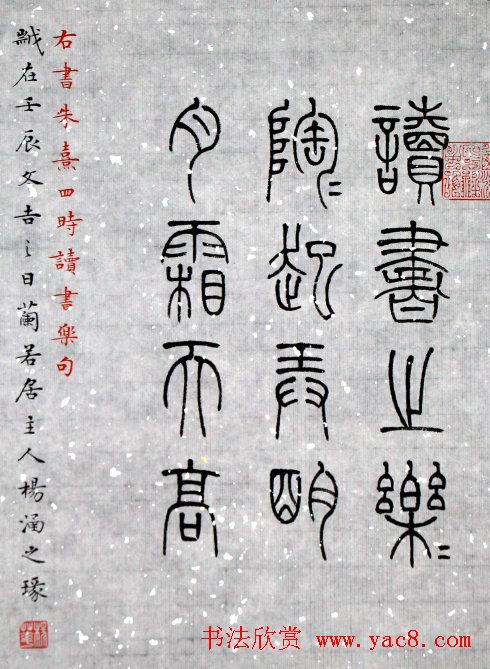 讀書之樂〻
陶〻起弄明
月霜天高
右書朱熹四時讀書樂句
在壬辰文吉之日蘭若居主人楊涵之瑑
书法欣赏 www.yac8.com